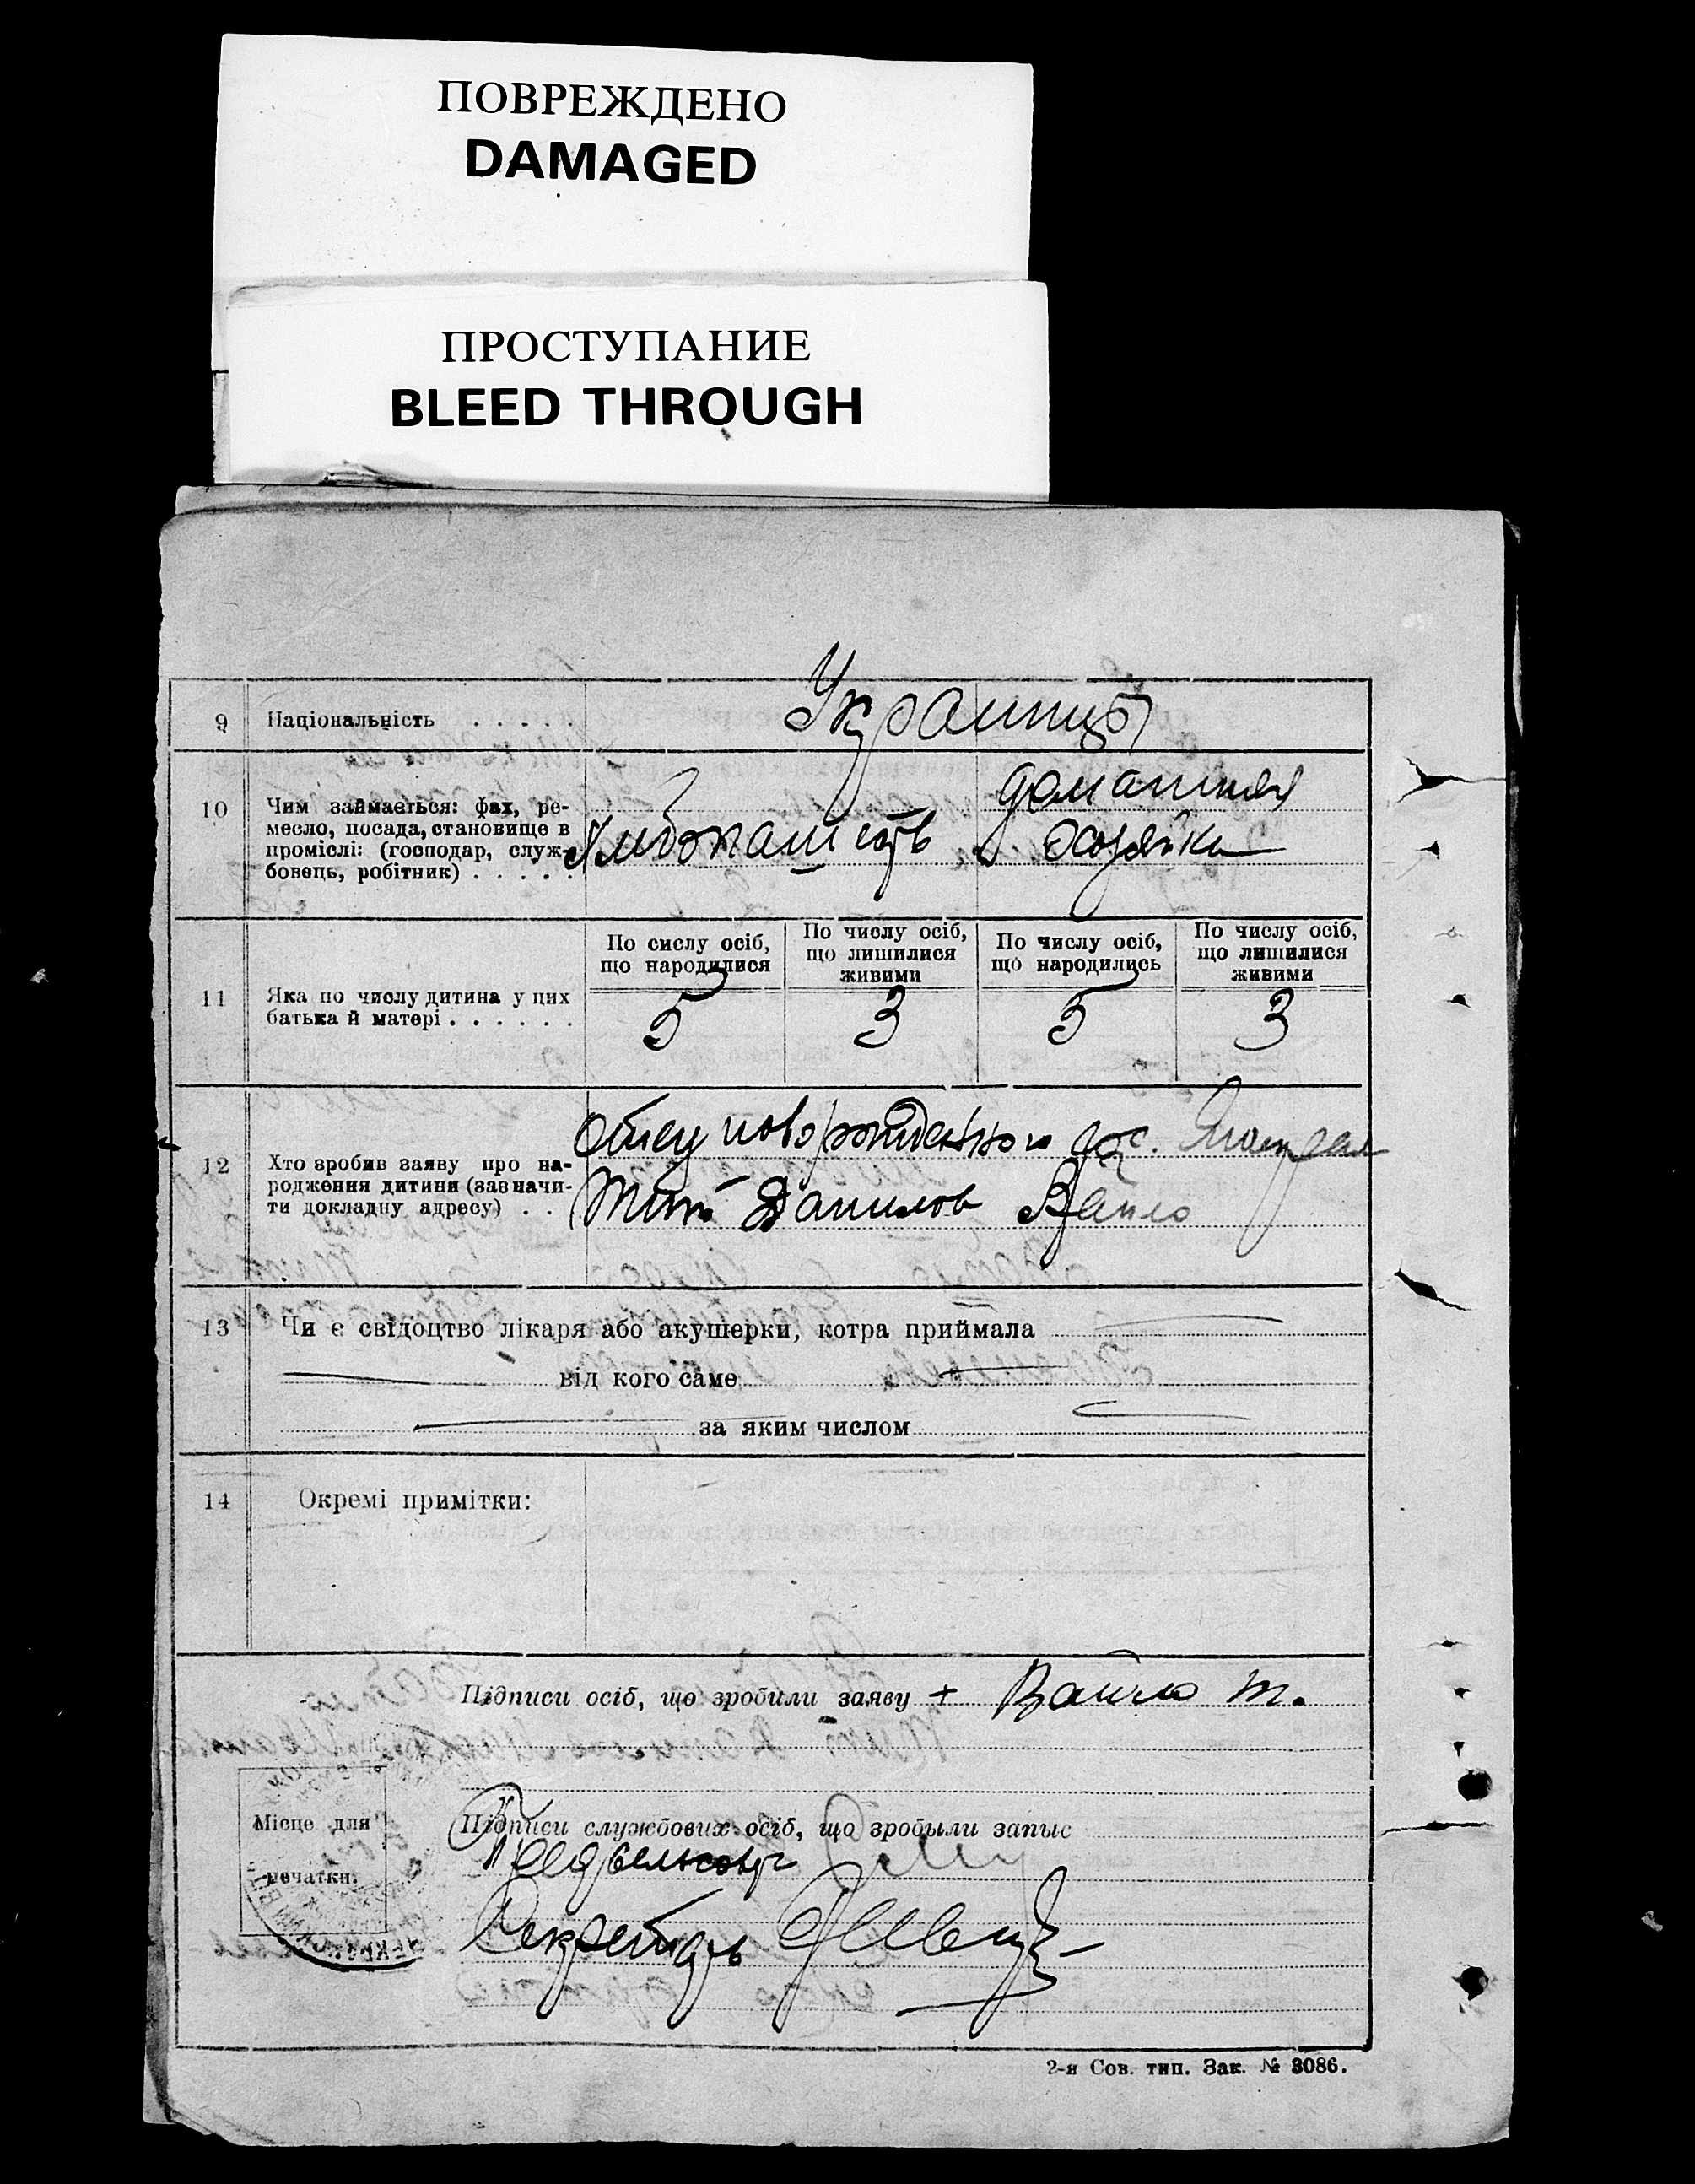 ПОВРЕЖДЕНО
DAMAGED
ПРОСТУПАНИЕ
BLEED THROUGH
9 Національність . . . . . Украинцы
10 Чим займається: фах, ре-
месло, посада, становище в
промислі: (господар, служ-
бовець, робітник) . . . . .
Хлибопашець
домашняя
хозяйка
По сислу осіб,
що народилися
По числу осіб,
що лишилися
живими
По числу осіб,
що народились
По числу осіб,
що лишилися
живими
11 Яка по числу дитина у цих
батька й матері . . . . . .
5 3 5 3
12 Хто зробив заяву про на-
родження дитини (зазначи-
ти докладну адресу) . .
Отец новорожденного
Тит Данилов Вайло
13 Чи є свідоцтво лікаря або акушерки, котра приймала
від кого саме
за яким числом
14 Окремі примітки:
Підписи осіб, що зробили заяву + Вайло Т.
Місце для
печатки.
Підписи службових осіб, що зробыли запыс
Предсельсовета
Секретарь
2-я Сов. тип. Зак. № 3086.